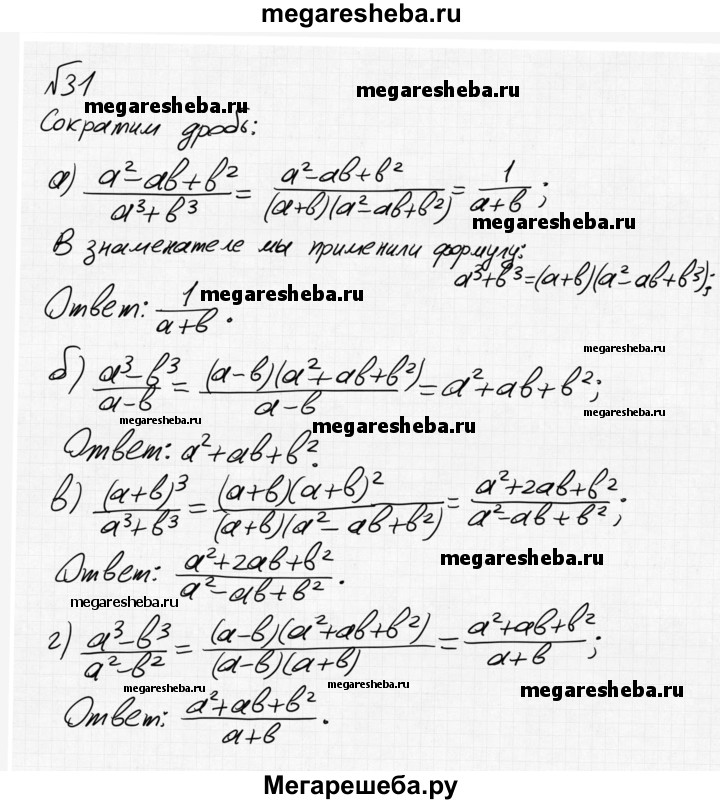 megaresheba.ru
№31
megaresheba.ru megaresheba.ru
Сократим дробь:
а) (a²-ab+b²)/(a³+b³) = (a²-ab+b²)/((a+b)(a²-ab+b²)) = 1/(a+b);
megaresheba.ru
В знаменателе мы применили формулу:
a³+b³=(a+b)(a²-ab+b³);
Ответ: 1/(a+b).
megaresheba.ru
megaresheba.ru
б) (a³-b³)/(a-b) = ((a-b)(a²+ab+b²))/(a-b) = a²+ab+b²;
megaresheba.ru megaresheba.ru
megaresheba.ru
Ответ: a²+ab+b².
в) (a+b)³/(a³+b³) = ((a+b)(a+b)²)/((a+b)(a²-ab+b²)) = (a²+2ab+b²)/(a²-ab+b²);
megaresheba.ru
Ответ: (a²+2ab+b²)/(a²-ab+b²).
megaresheba.ru
г) (a³-b³)/(a²-b²) = ((a-b)(a²+ab+b²))/((a-b)(a+b)) = (a²+ab+b²)/(a+b);
megaresheba.ru megaresheba.ru megaresheba.ru
Ответ: (a²+ab+b²)/(a+b).
Мегарешеба.ру